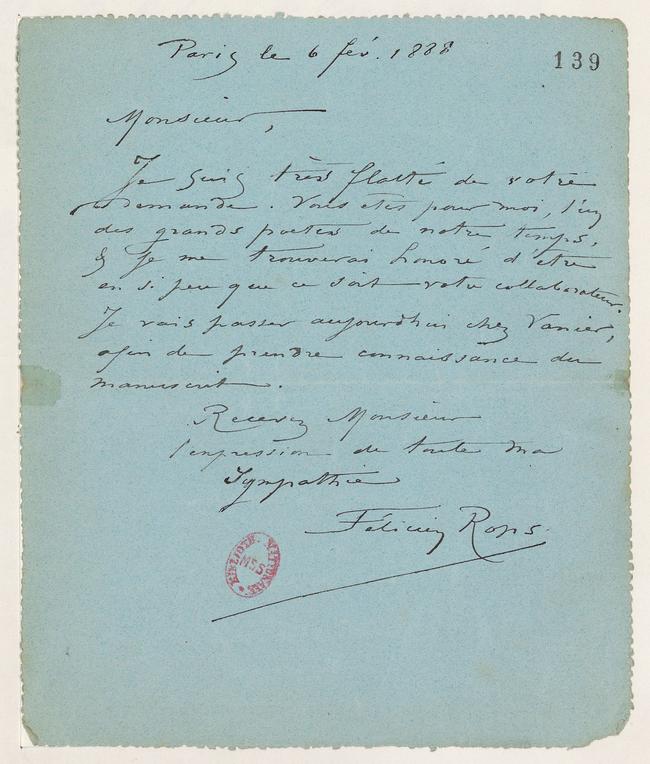 Paris le 6 fév. 1888
139
Monsieur,
Je suis très flatté de votre
demande. Vous êtes pour moi, l'un
des grands poètes de notre temps,
& Je me trouverai honoré d'être
en si peu que ce soit votre collaborateur.
Je vais passer aujourdhui chez Vanier,
afin de prendre connaissance du
manuscrit.
Recevez Monsieur
l'expression de toute ma
Sympathie
Félicien Rops.
BIBLIOTH. NATIONALE
MSS